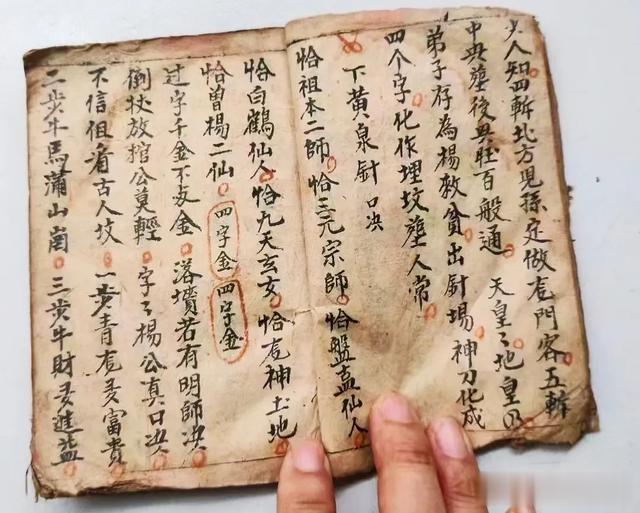 夫人知四斬北方児孫定做㡳門客五斬
中央塟後興旺百般通 天皇〻地皇
弟子存為楊救貧出針場神刀化成
四个字化作埋坟塟人常
下黃泉針口决
恰祖本二師 恰三元宗師 恰盤盖仙人
恰白鶴仙人恰九天玄女 恰㡳神土地
恰曽楊二仙 四字金 四字金
过字千金不卖金 落墳若有明師决
倒杖放棺公莫輕 字〻楊公真口决
不信但看古人坟 一步青㡳多富貴
二步牛馬滿山崗 三步牛財多進益